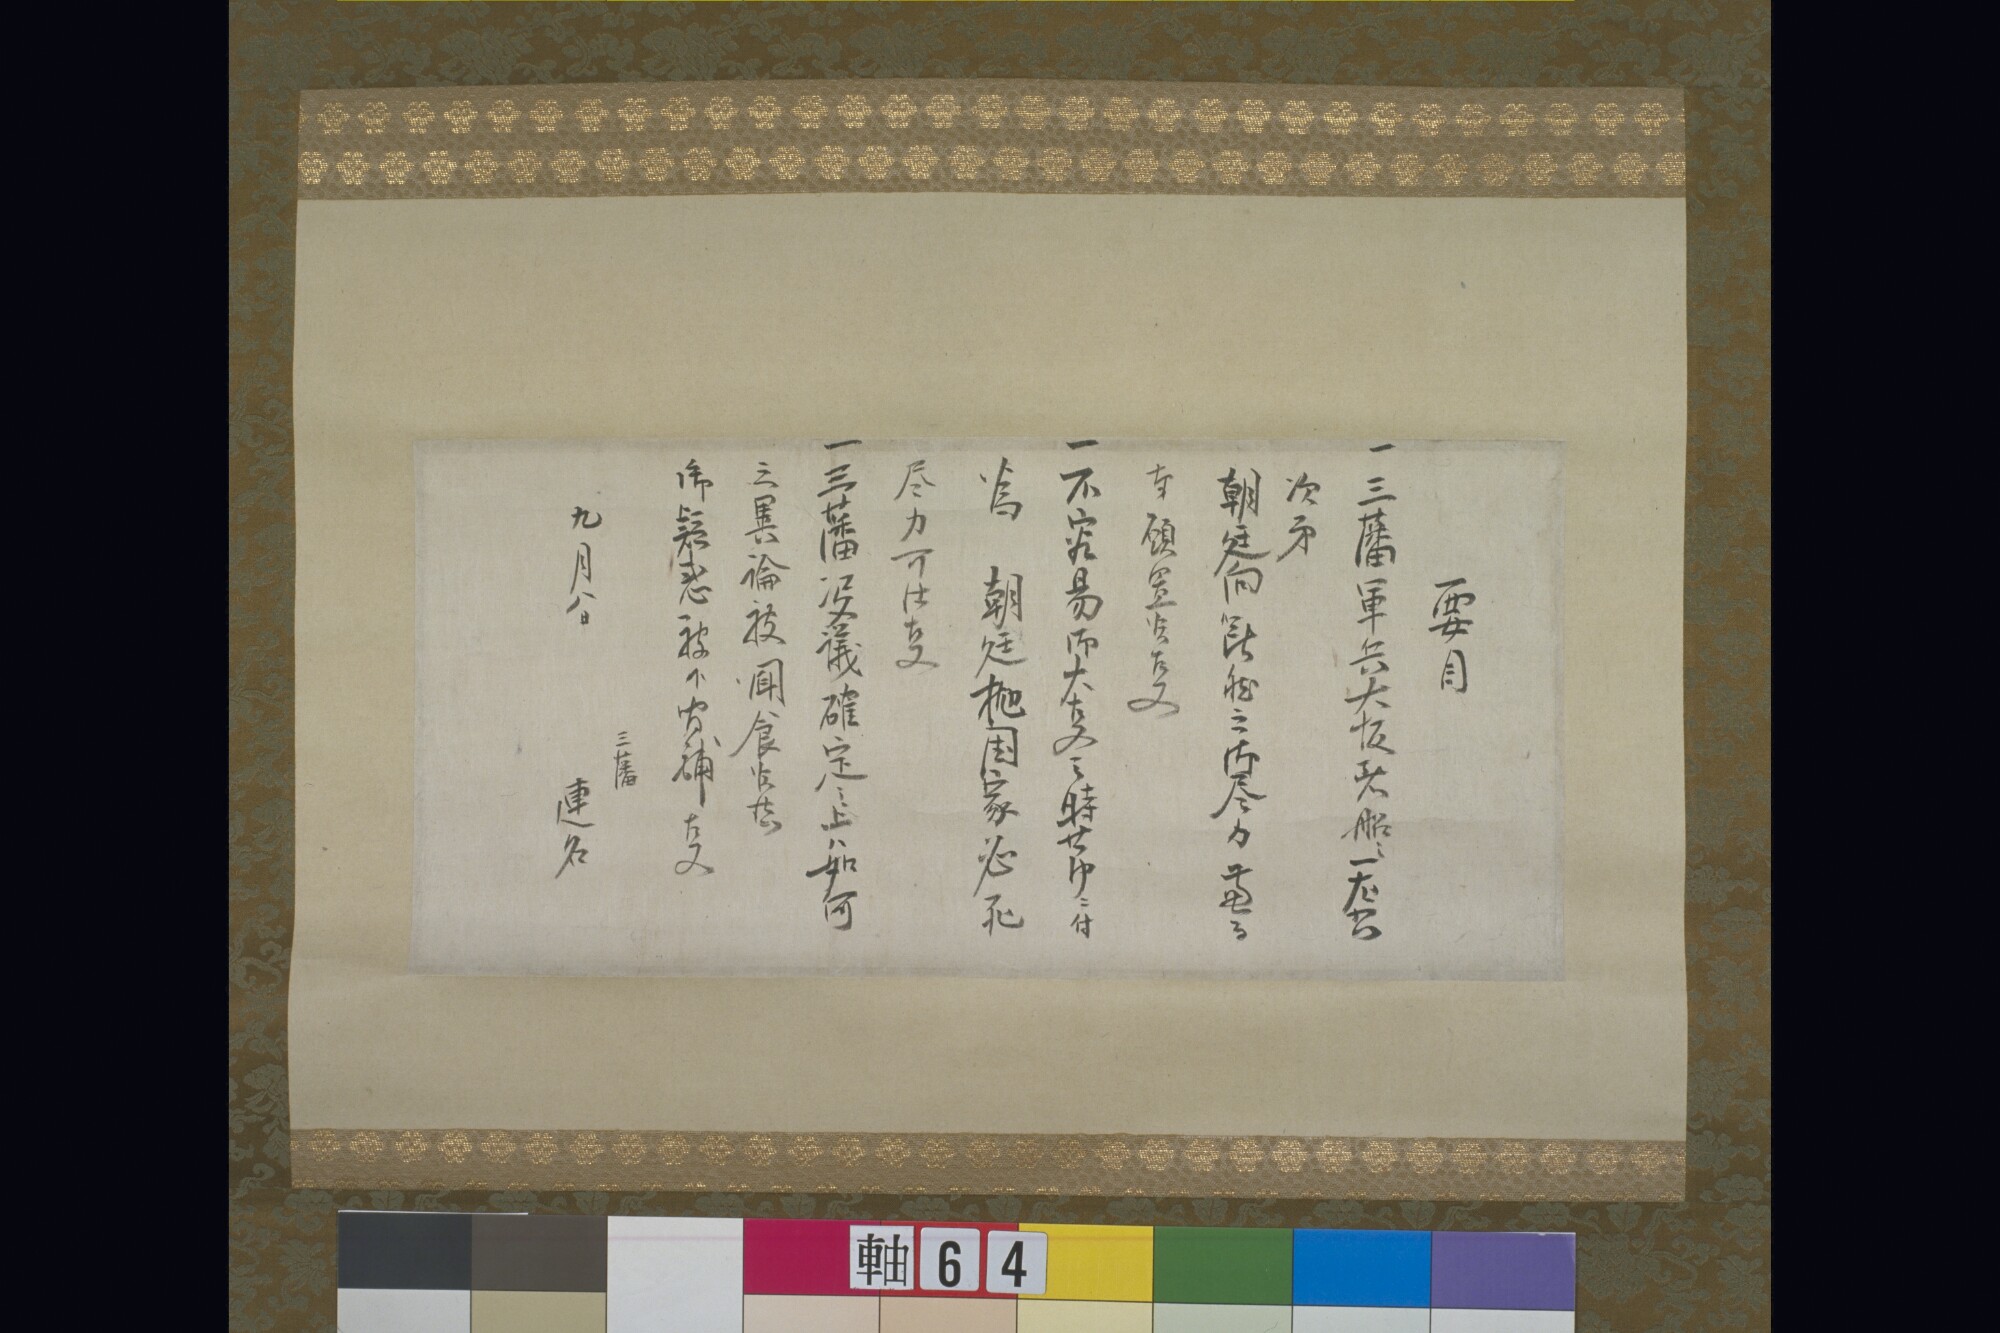 要目
一三藩軍兵大坂着船之一左右
次第
朝廷向断然之御尽力兼而
奉願置候事
一不容易御大事之時節ニ付
為 朝廷抛国家必死
尽力可仕事
一三藩決議確定之上ハ如何
之異論被聞食候共
御疑惑被下間補事
九月八日
三藩
連名
軸64